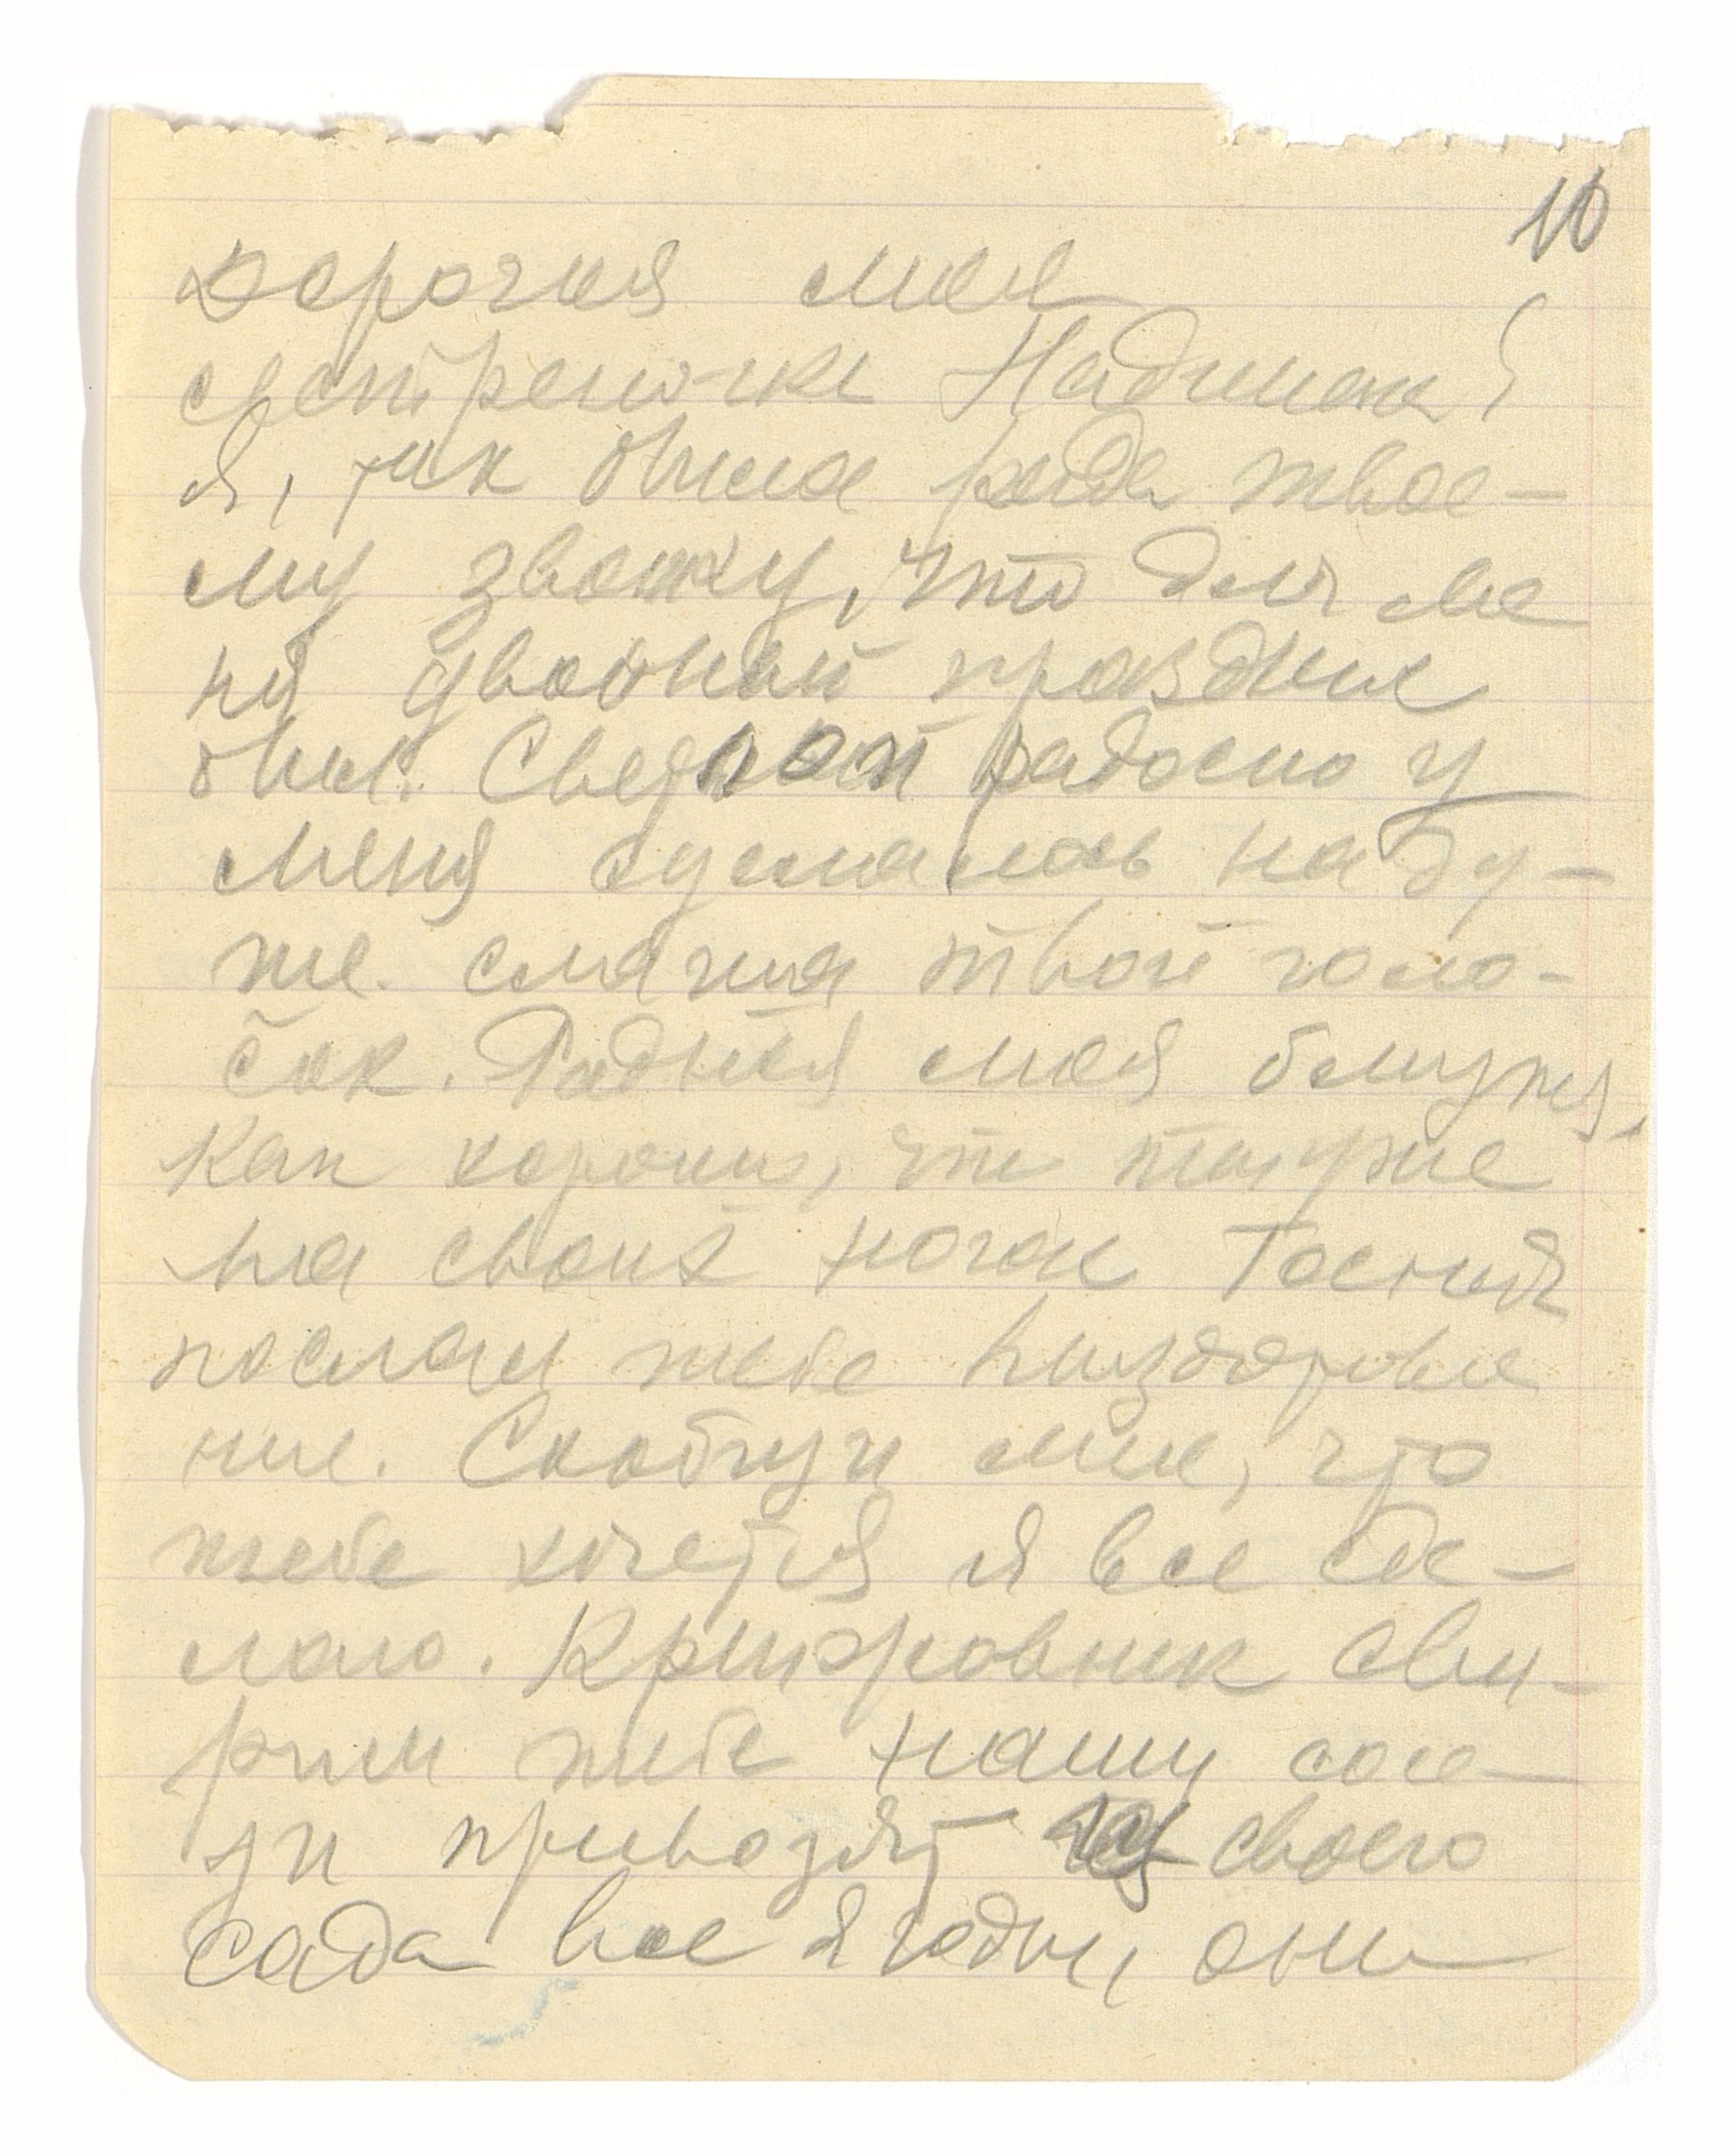 10
дорогая моя
сестреночка Надинька!
Я, так была рада твое-
му звонку, что для ме
ня двойной праздник
был. Светло и радосно у
меня сделалась на ду-
ше. слыша твой голо-
сок. Родная моя близкая,
как хорошо, что ты уже
на своих ногах Господь
послал тебе выздоровле
ние. Сообщи мне, что
тебе хочется я все сде-
лаю. Крыжовник сва-
рим тебе наши сосе-
ди привозят из своего
сада все ягоды, они